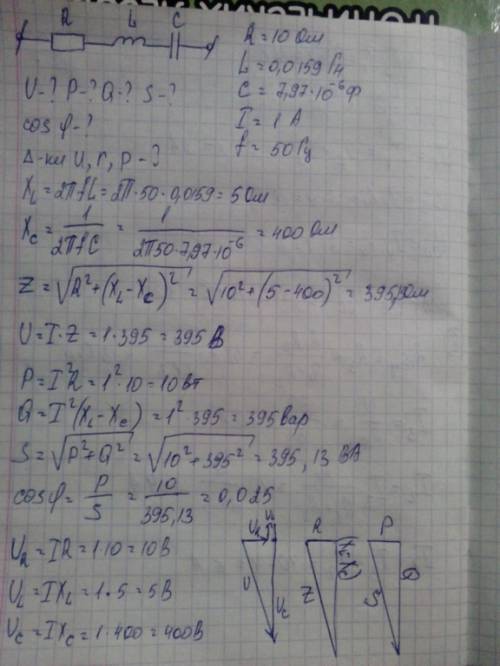 R L C
R = 10 Ом
L = 0,0159 Гн
C = 7,97·10⁻⁶ Ф
I = 1 А
f = 50 Гц
U-? P-? Q-? S-?
cos φ-?
Δ-ки U, r, P-?
X_L = 2πfL = 2π·50·0,059 = 5 Ом
X_C = 1/(2πfC) = 1/(2π50·7,97·10⁻⁶) = 400 Ом
Z = √(R²+(X_L-X_C)²) = √(10²+(5-400)²) = 395,13 Ом
U = I·Z = 1·395 = 395 В
P = I²R = 1²·10 = 10 вт
Q = I²(X_L-X_C) = 1² 395 = 395 вар
S = √(P²+Q²) = √(10²+395²) = 395,13 ВА
cos φ = P/S = 10/395,13 = 0,025
U_R = IR = 1·10 = 10 В
U_L = IX_L = 1·5 = 5 В
U_C = IX_C = 1·400 = 400 В
U_R U_L U U_C
R Z X_L-X_C
P S Q